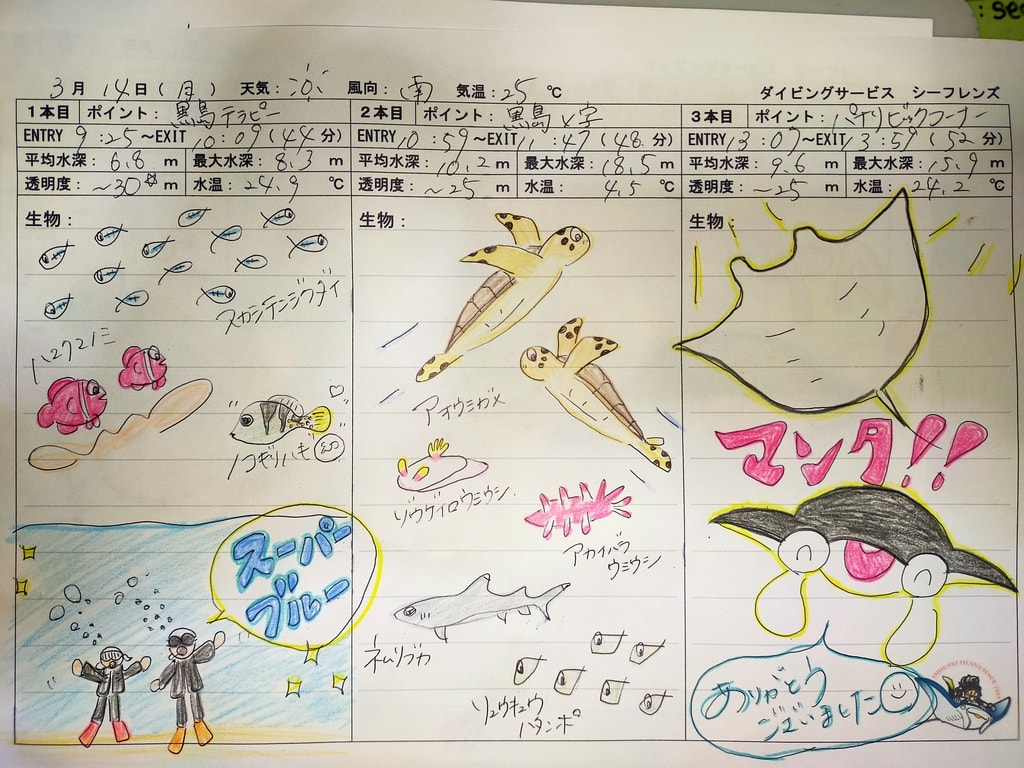 : se
3月 14日 (月) 天気: 風向: 南 気温: 25 ℃
ダイビングサービス シーフレンズ
1本目 ポイント: 黒島テラピー
ENTRY 9:25~EXIT 10:09 (44分)
平均水深: 6.8 m 最大水深: 8.3 m
透明度: ~30 m 水温: 24.9 ℃
生物:
スカシテンジクダイ
ハマクマノミ
ノコギリハギ
スーパー
ブルー
2本目 ポイント: 黒島V字
ENTRY 10:59~EXIT 11:47 (48分)
平均水深: 10.2 m 最大水深: 18.5 m
透明度: ~25 m 水温: 4.5 ℃
生物:
アオウミガメ
ゾウゲイロウミウシ
アカイバラ
ウミウシ
ネムリブカ
リュウキュウ
ハタンポ
3本目 ポイント: パナリビックコーナー
ENTRY 13:07~EXIT 13:59 (52分)
平均水深: 9.6 m 最大水深: 15.9 m
透明度: ~25 m 水温: 24.2 ℃
生物:
マンタ!!
ありがとう
ございました